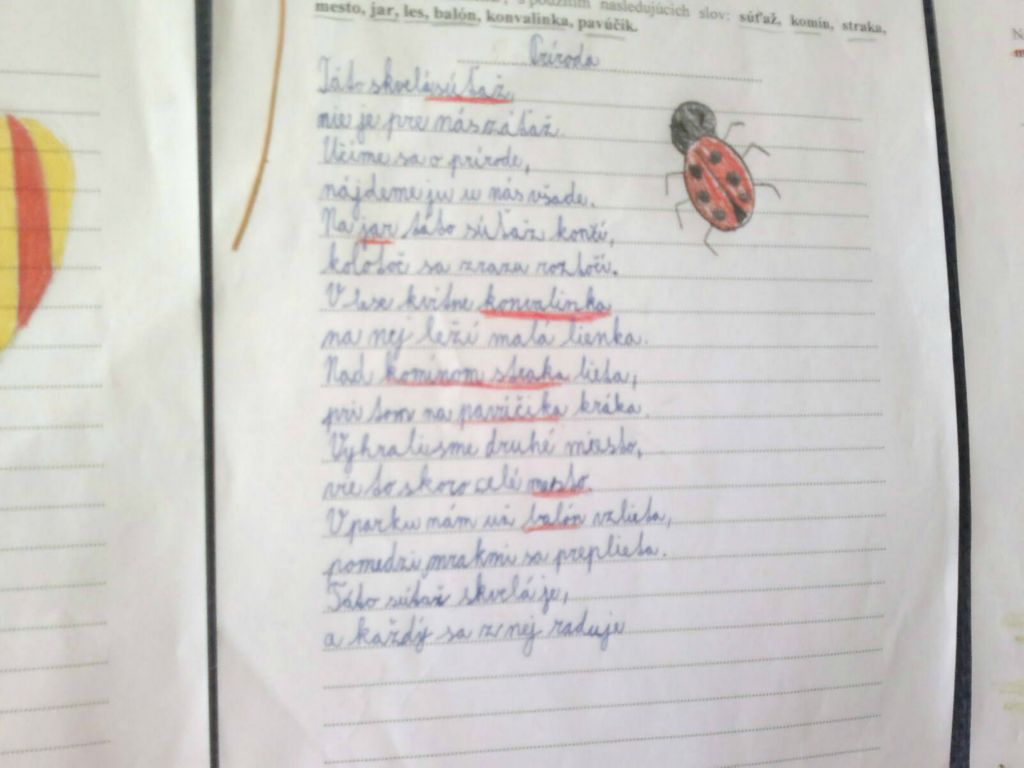 s použitím nasledujúcich slov: súťaž, komín, straka,
mesto, jar, les, balón, konvalinka, pavúčik.
Príroda
Táto skvelá súťaž
nie je pre nás záťaž.
Učíme sa o prírode,
nájdeme ju u nás všade.
Na jar táto súťaž končí,
kolotoč sa zrazu roztočí.
V lese kvitne konvalinka
na nej leží malá lienka.
Nad komínom straka lieta,
pri tom na pavúčika kráka.
Vyhrali sme druhé miesto,
vie to skoro celé mesto.
V parku nám už balón vzlieta,
pomedzi mrakmi sa preplieta.
Táto súťaž skvelá je,
a každý sa z nej raduje